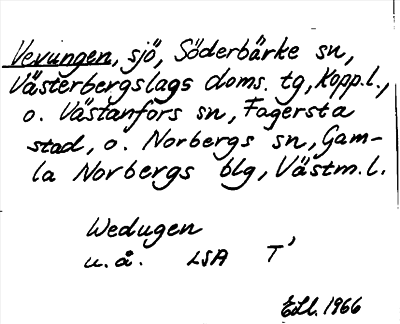 Vevungen, sjö, Söderbärke sn,
Västerbergslags doms. tg, Kopp.l.,
o. Västanfors sn, Fagersta
stad, o. Norbergs sn, Gam-
la Norbergs blg, Västm.l.
Wedugen
u.å. LSA T'
E.Ll. 1966